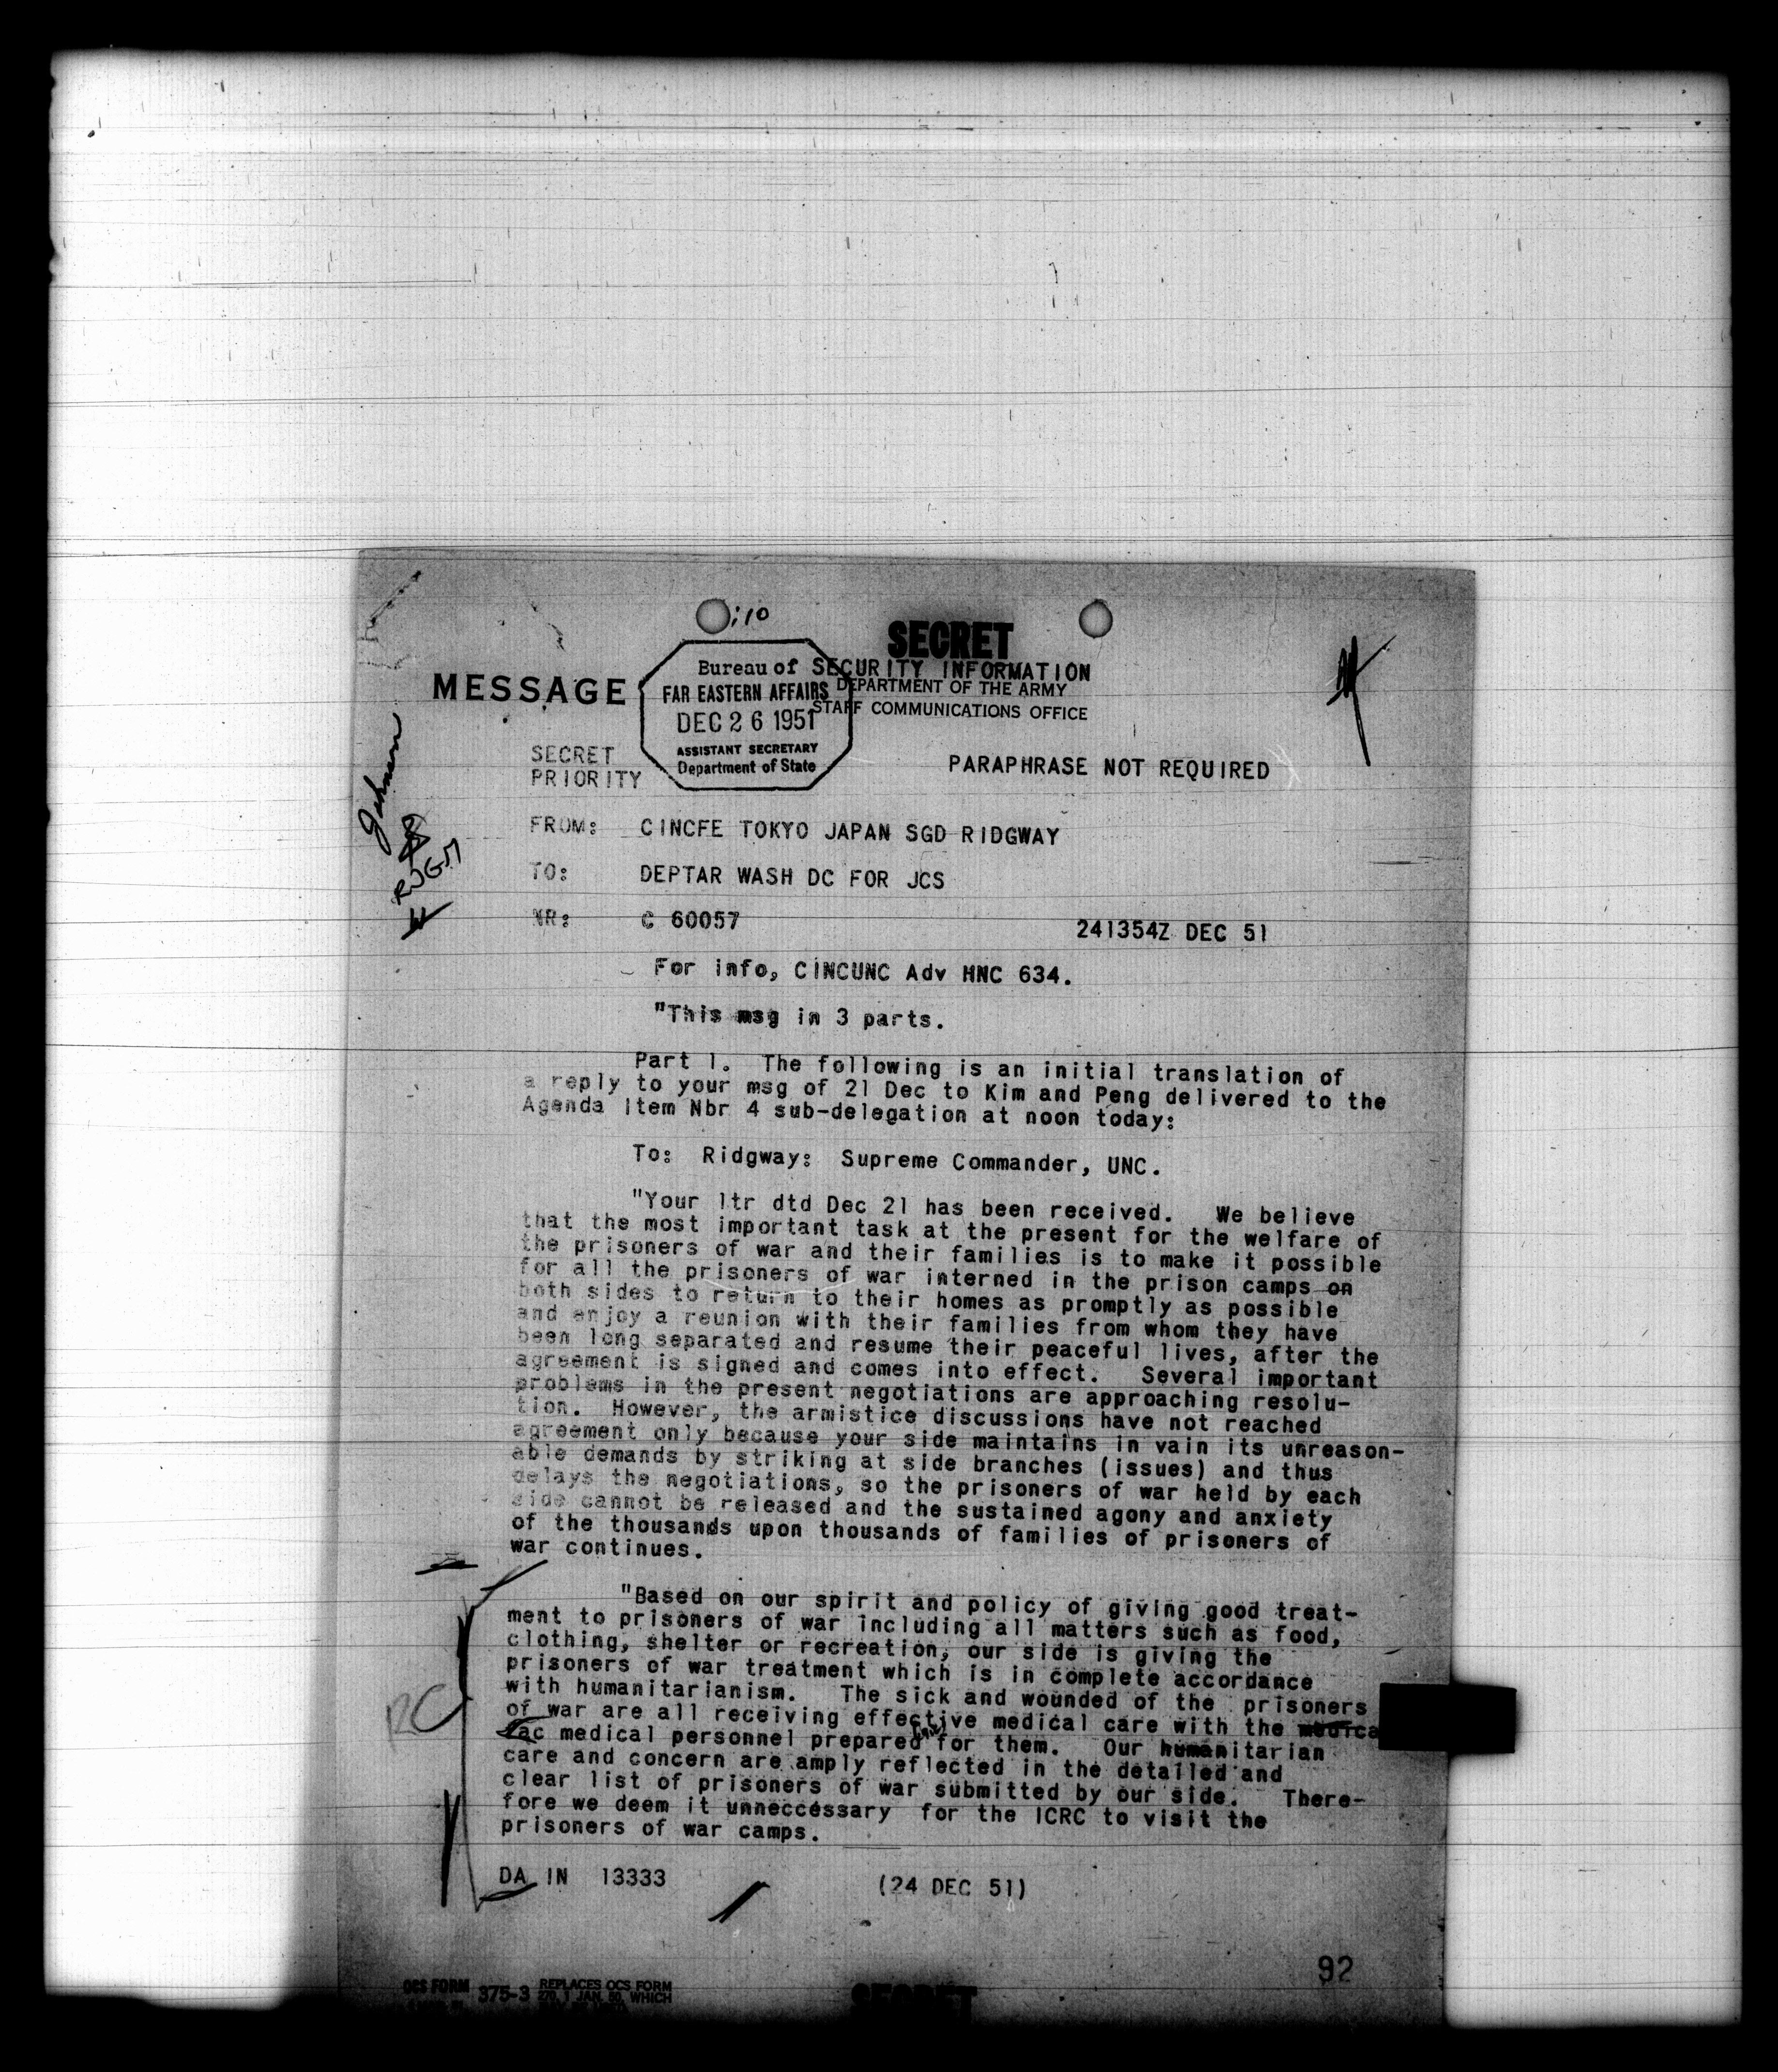 :10
SECRET
Bureau of
SECURITY INFORMATION
MESSAGE
FAR EASTERN AFFAIRS
DEPARTMENT OF THE ARMY
DEC 26 1951
STAFF COMMUNICATIONS OFFICE
ASSISTANT SECRETARY
Department of State
SECRET
PRIORITY
PARAPHRASE NOT REQUIRED
Johnson
FROM: CINCFE TOKYO JAPAN SGD RIDGWAY
TO: DEPTAR WASH DC FOR JCS
NR: C 60057 241354Z DEC 51
For info, CINCUNC Adv HNC 634.
"This msg in 3 parts.
Part 1. The following is an initial translation of
a reply to your msg of 21 Dec to Kim and Peng delivered to the
Agenda Item Nbr 4 sub-delegation at noon today:
To: Ridgway: Supreme Commander, UNC.
"Your ltr dtd Dec 21 has been received. We believe
that the most important task at the present for the welfare of
the prisoners of war and their families is to make it possible
for all the prisoners of war interned in the prison camps on
both sides to return to their homes as promptly as possible
and enjoy a reunion with their families from whom they have
been long separated and resume their peaceful lives, after the
agreement is signed and comes into effect. Several important
problems in the present negotiations are approaching resolu-
tion. However, the armistice discussions have not reached
agreement only because your side maintains in vain its unreason-
able demands by striking at side branches (issues) and thus
delays the negotiations, so the prisoners of war held by each
side cannot be released and the sustained agony and anxiety
of the thousands upon thousands of families of prisoners of
war continues.
"Based on our spirit and policy of giving good treat-
ment to prisoners of war including all matters such as food,
clothing, shelter or recreation, our side is giving the
prisoners of war treatment which is in complete accordance
with humanitarianism. The sick and wounded of the prisoners
of war are all receiving effective medical care with the medica
fac medical personnel prepared for them. Our humanitarian
care and concern are amply reflected in the detailed and
clear list of prisoners of war submitted by our side. There-
fore we deem it unneccessary for the ICRC to visit the
prisoners of war camps.
RC
DA IN 13333 (24 DEC 51)
92
OCS FORM 375-3 REPLACES OCS FORM
270, 1 JAN. 50, WHICH
SECRET